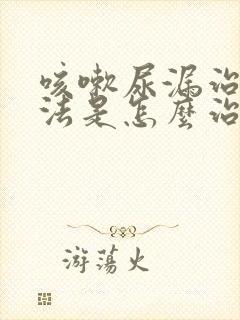 咳嗽尿漏治
法是怎麼治
游荡火